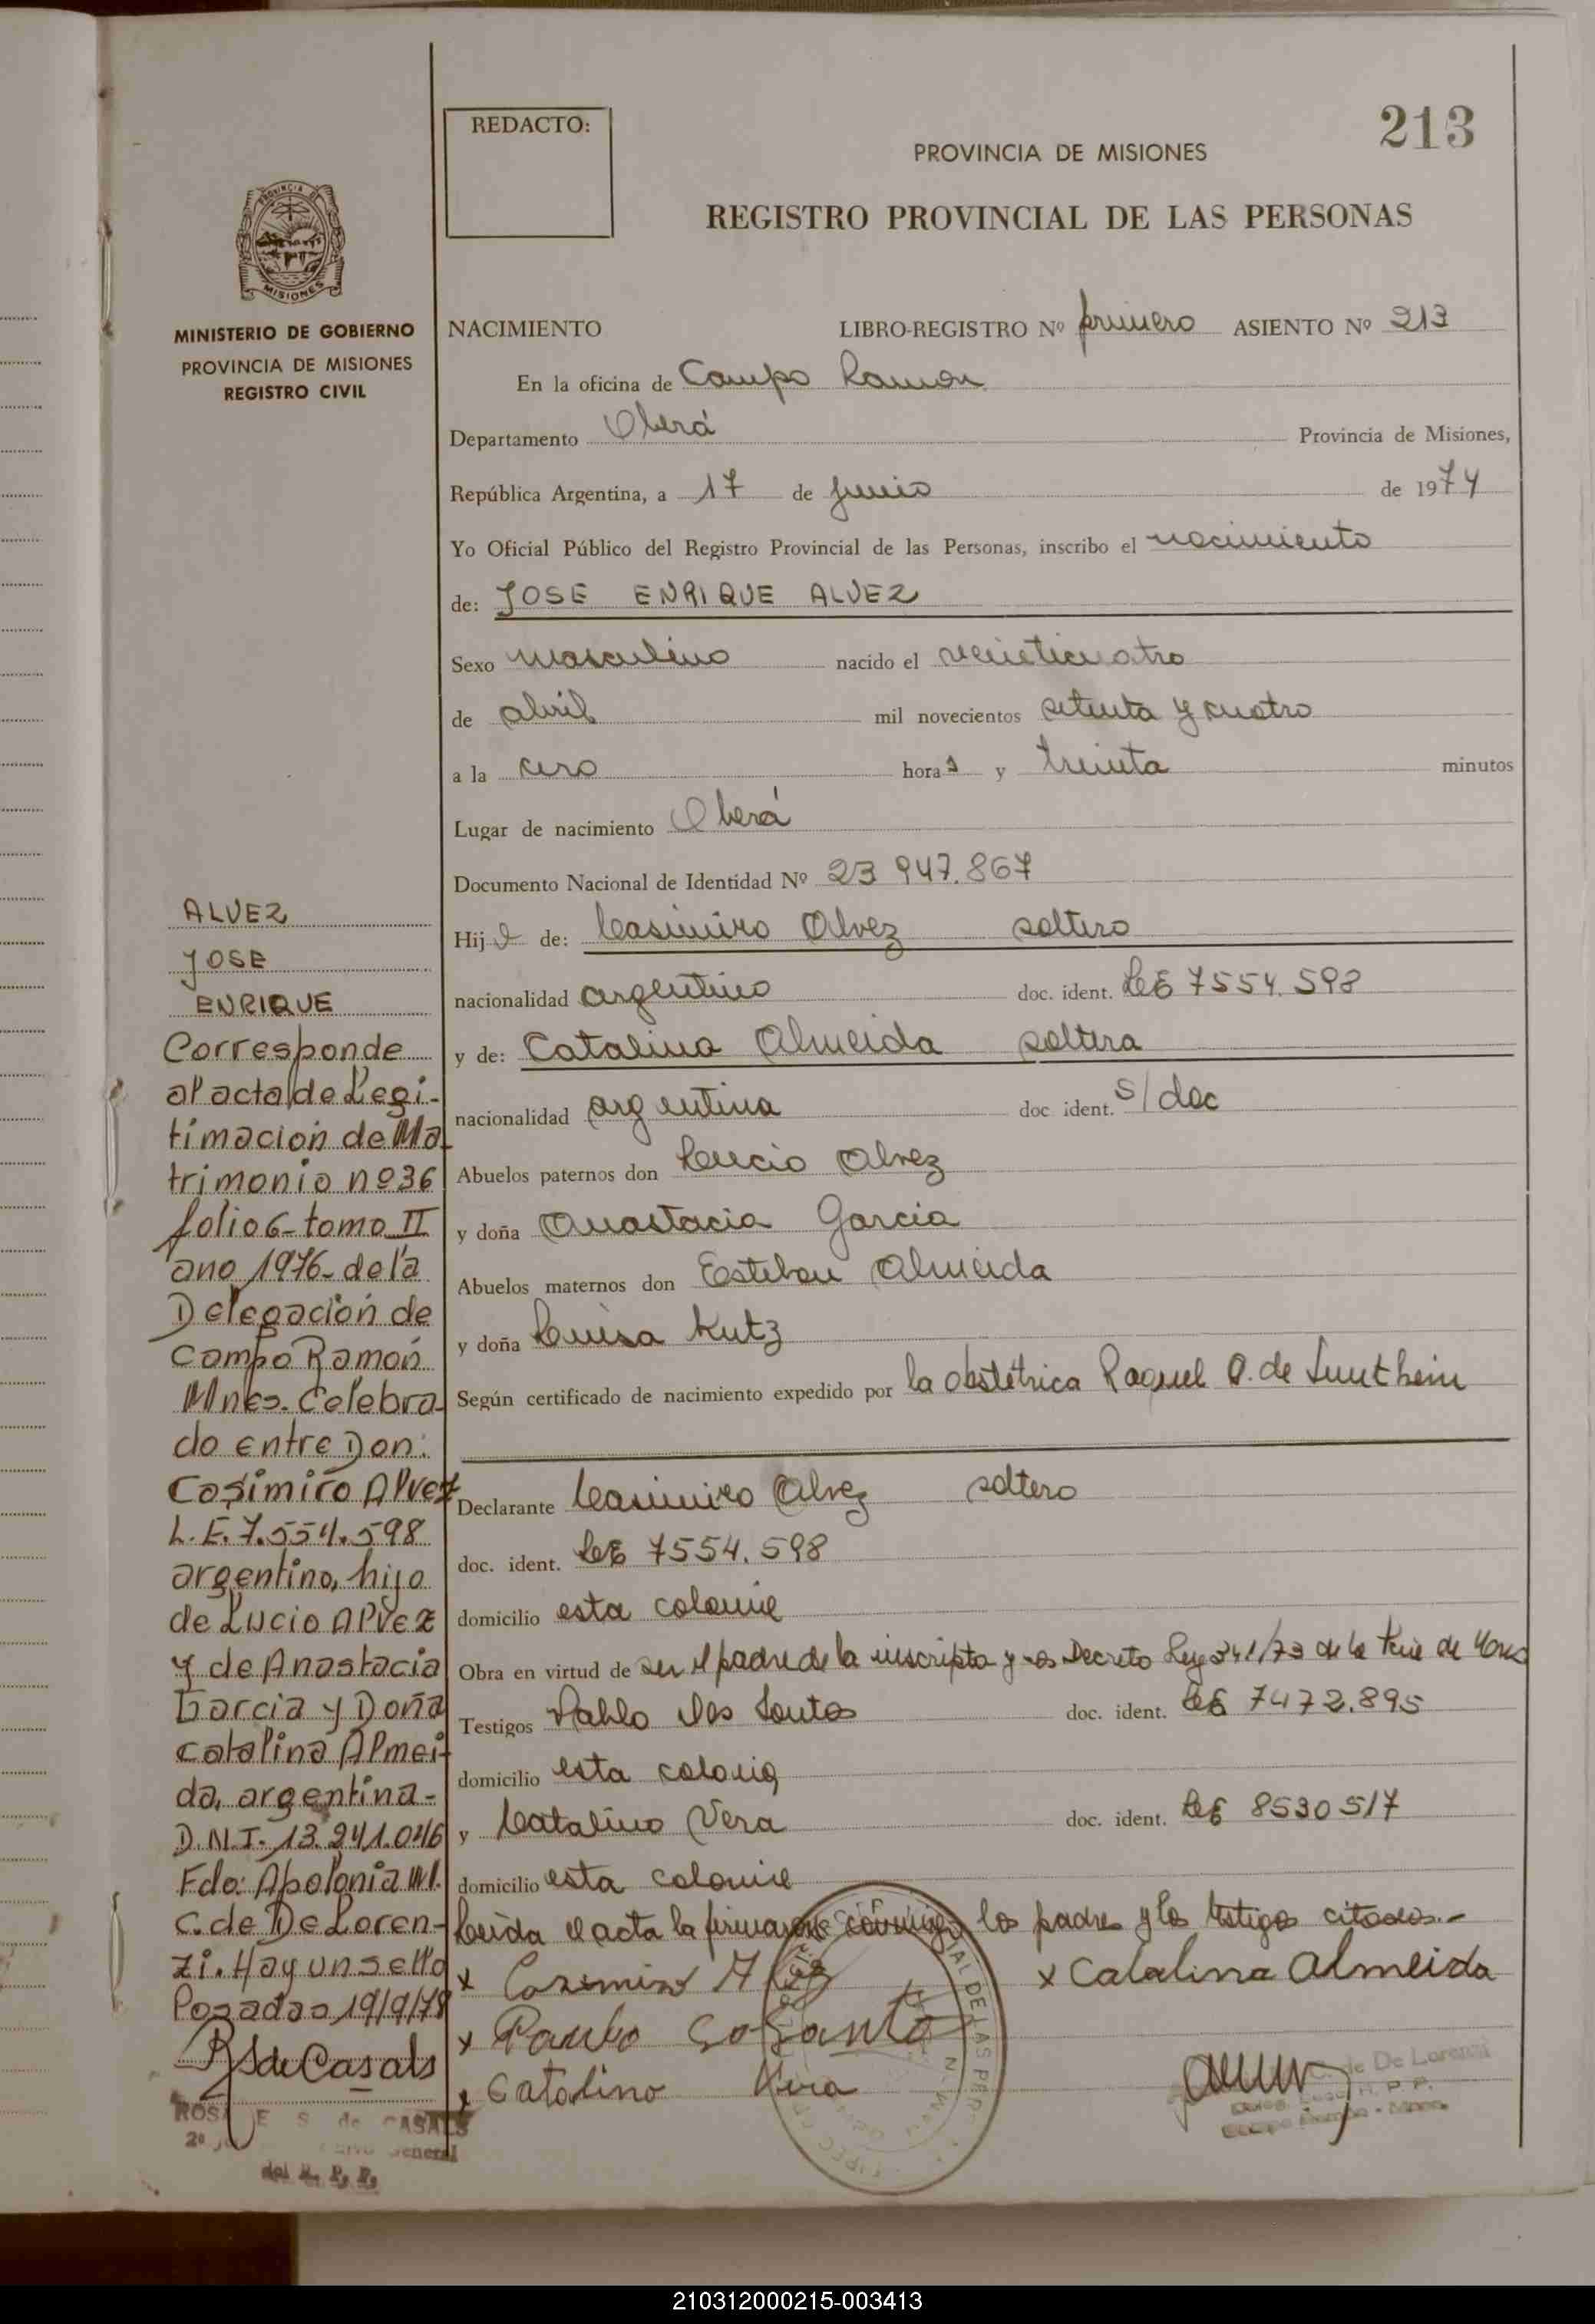 213
REDACTO:
PROVINCIA DE MISIONES
REGISTRO PROVINCIAL DE LAS PERSONAS
PROVINCIA DE
MISIONES
MINISTERIO DE GOBIERNO
PROVINCIA DE MISIONES
REGISTRO CIVIL
NACIMIENTO LIBRO-REGISTRO Nº primero ASIENTO Nº 213
En la oficina de Campo Ramon
Departamento Oberá Provincia de Misiones,
República Argentina, a 17 de junio de 1974
Yo Oficial Público del Registro Provincial de las Personas, inscribo el nacimiento
de: JOSE ENRIQUE ALVEZ
Sexo masculino nacido el veinticuatro
de abril mil novecientos setenta y cuatro
a la cero horas y treinta minutos
Lugar de nacimiento Oberá
Documento Nacional de Identidad Nº 23 947.867
Hijo de: Casimiro Alvez soltero
nacionalidad argentino doc. ident. LE 7554.598
y de: Catalina Almeida soltera
nacionalidad argentina doc ident. s/doc
Abuelos paternos don Lucio Alvez
y doña Anastacia Garcia
Abuelos maternos don Esteban Almeida
y doña Luisa Kutz
Según certificado de nacimiento expedido por la obstétrica Raquel O. de
Declarante Casimiro Alvez soltero
doc. ident. LE 7554.598
domicilio esta colonia
Obra en virtud de ser el padre de la inscripta y Decreto Ley 341/73 de la
Testigos Pablo Dos Santos doc. ident. LE 7472.895
domicilio esta colonia
y Catalino Vera doc. ident. LE 8530517
domicilio esta colonia
Leida el acta la firmaron conmigo los padres y los testigos citados.-
x Casimiro Alvez x Catalina Almeida
x
x Catalino Vera
de De Lorenzi
ALVEZ
JOSE
ENRIQUE
Corresponde
al acta de Legi-
timación de Ma-
trimonio nº 36
folio 6-tomo II
ano 1976-de la
Delegación de
Campo Ramón
Mnes. Celebra-
do entre Don:
Casimiro Alvez
L.E. 7.554.598
argentino, hijo
de Lucio Alvez
y de Anastacia
Garcia y Doña
Catalina Almei-
da, argentina-
D.N.I. 13.241.046
Fdo: Apolonia M.
C. de De Loren-
zi. Hay un sello
Posadas 19/9/78
RSdeCasals
ROSA E S de CASALS
del R. P. P.
210312000215-003413